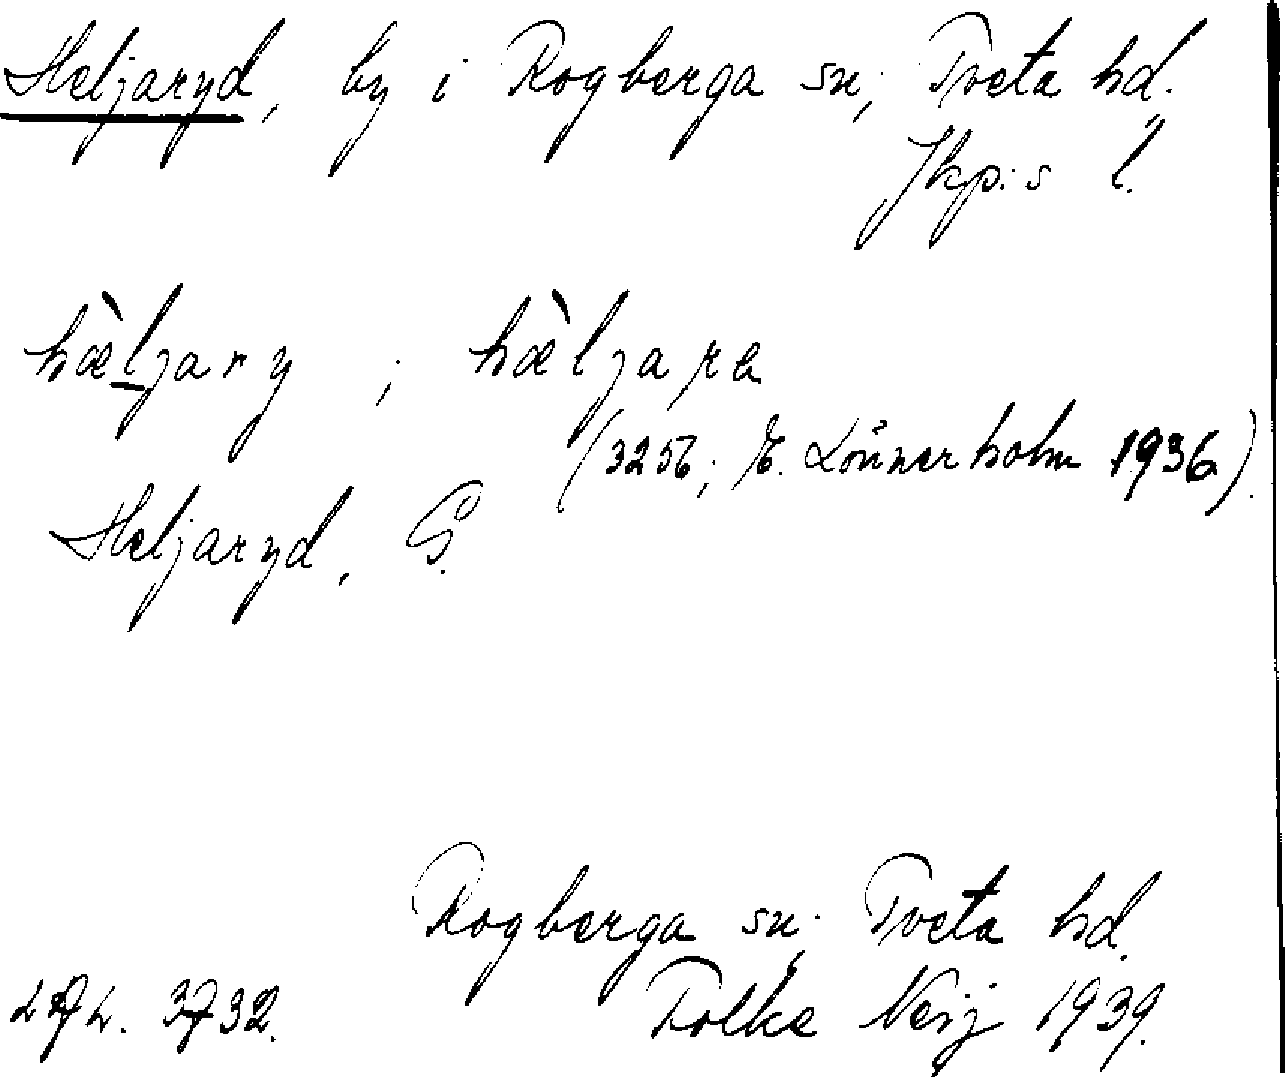 Heljaryd, by i Rogberga sn; Tveta hd.
Jkp:s l.
hæ̀ljary ; hæ̀ljara
(3256; E. Lönnerholm 1936).
Heljaryd, G.
Rogberga sn; Tveta hd.
3732. Folke Neij 1939.